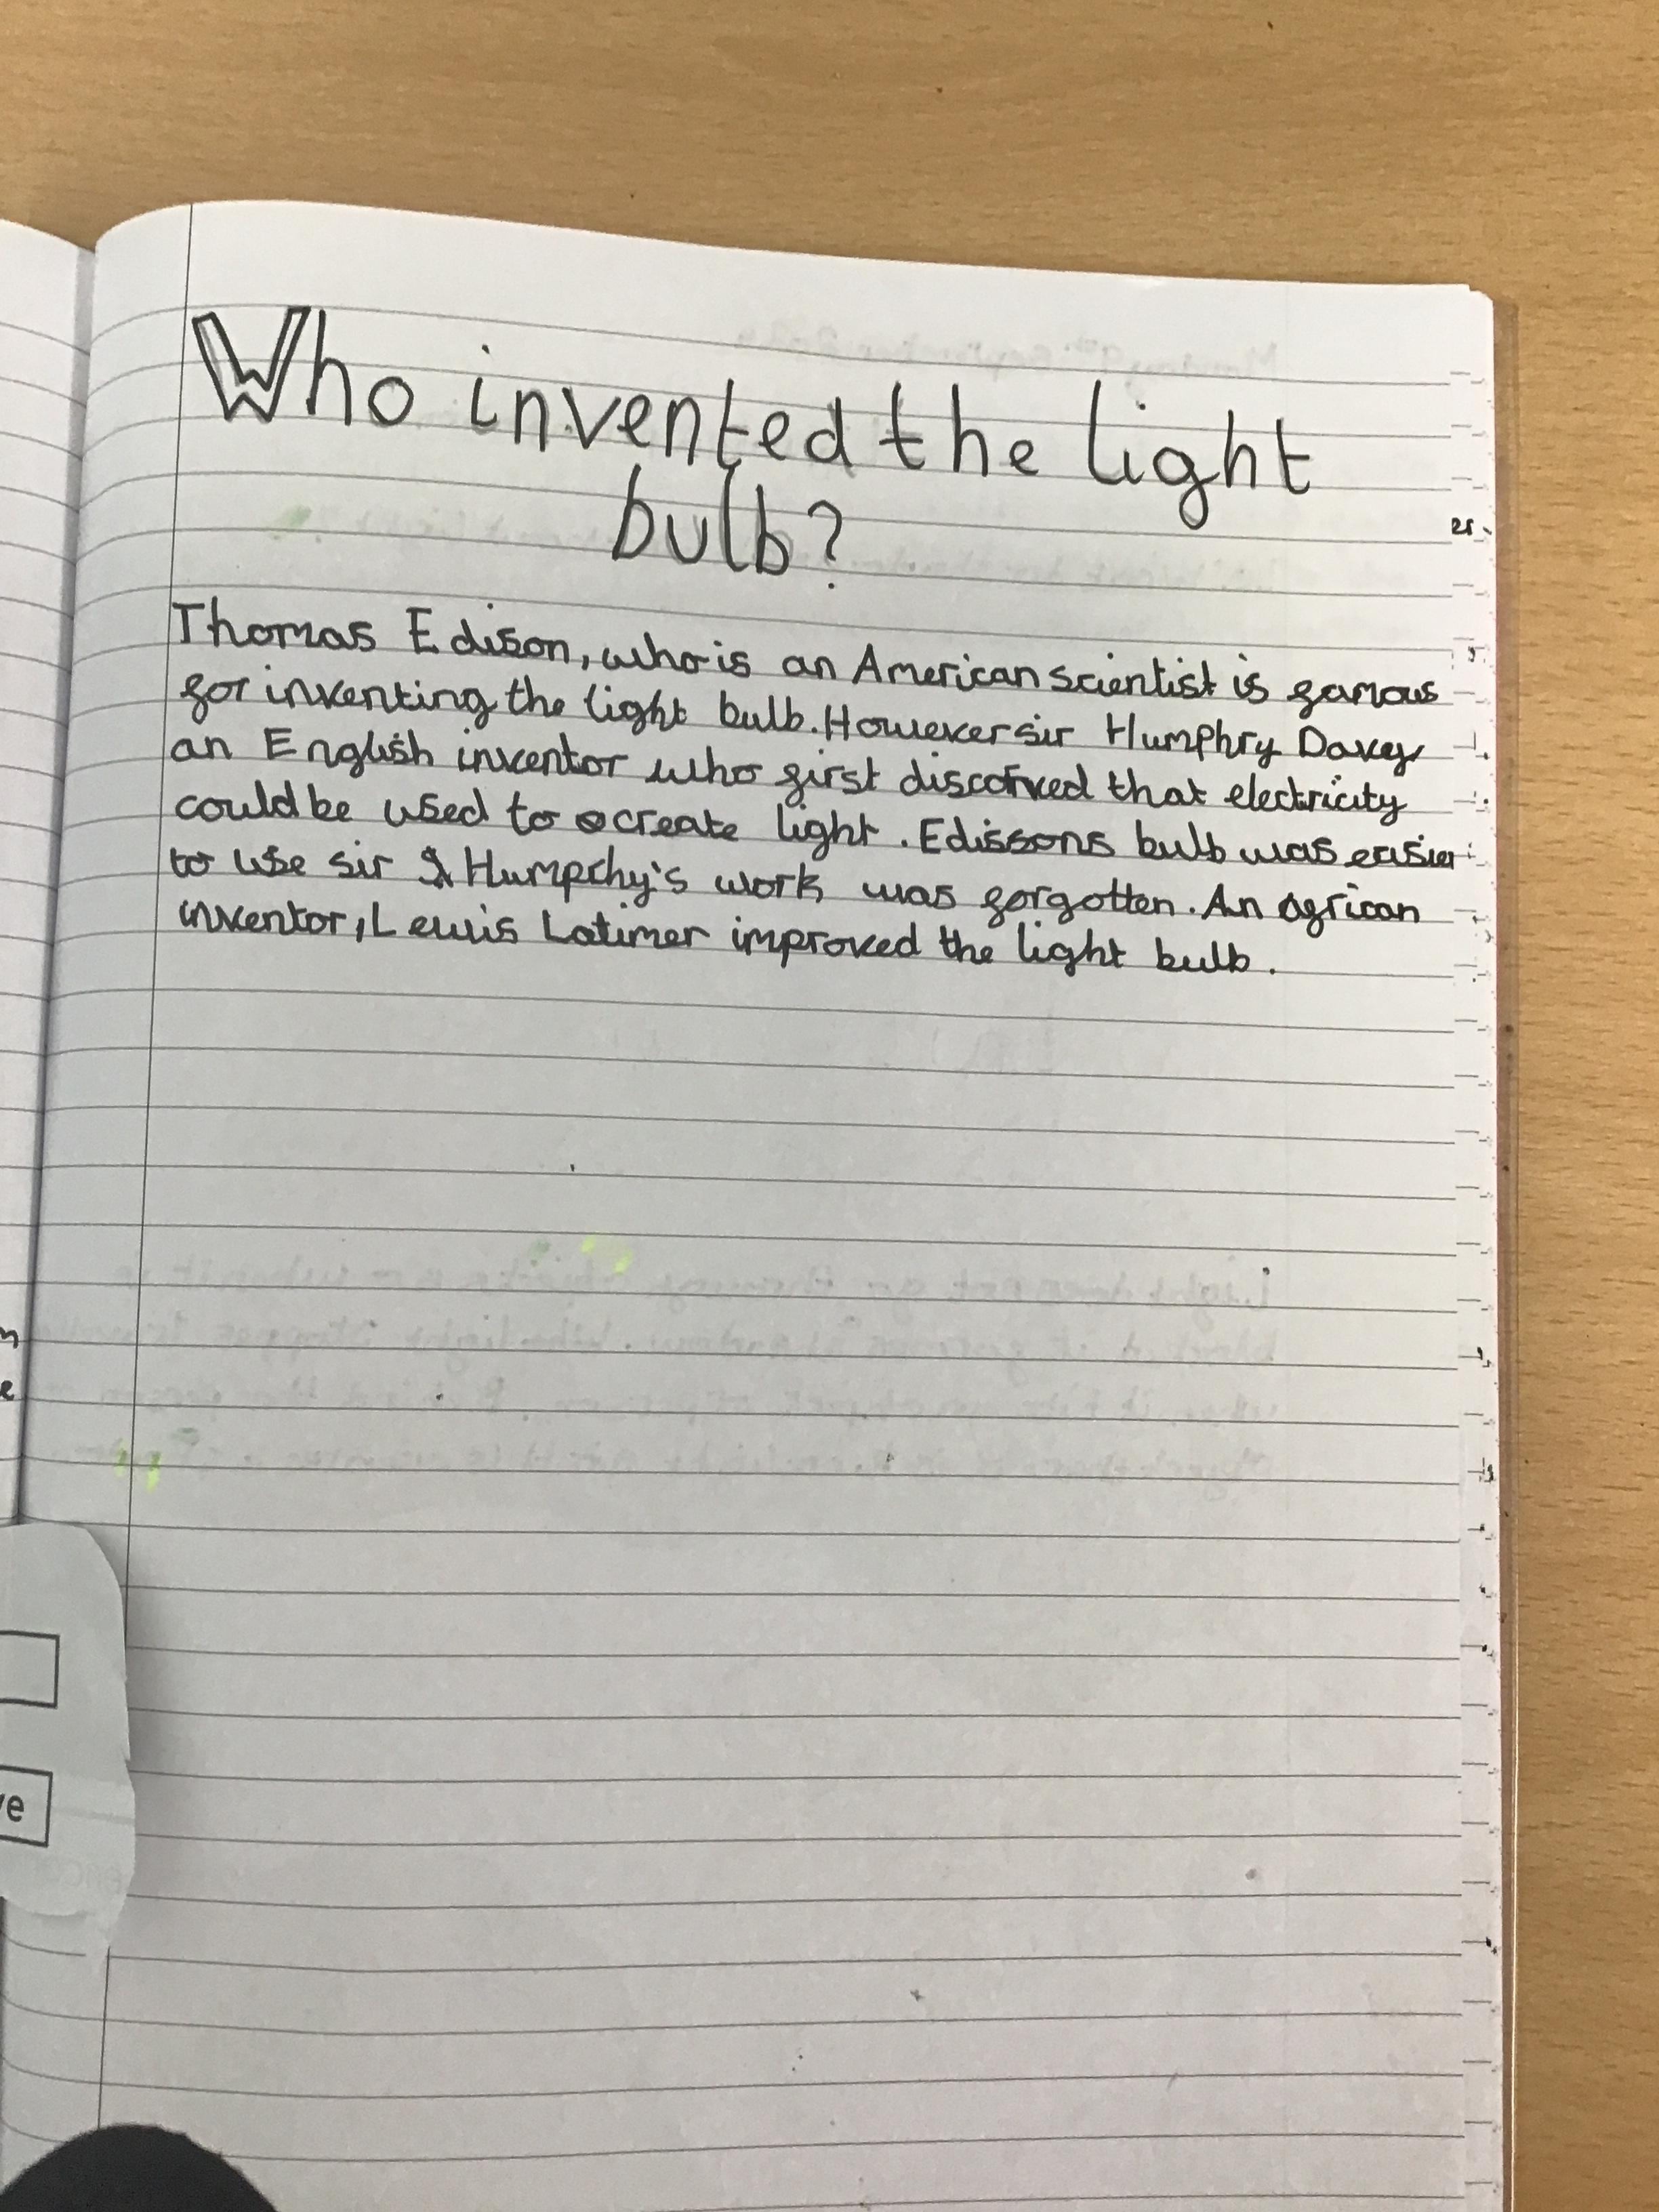 Who invented the light
bulb?
Thomas Edison, who is an American scientist is famous
for inventing the light bulb. However sir Humphry Davey
an English inventor who first discorved that electricity
could be used to create light. Edissons bulb was easier
to use sir Humprhy's work was forgotten. An african
inventor, Lewis Latimer improved the light bulb.
ve